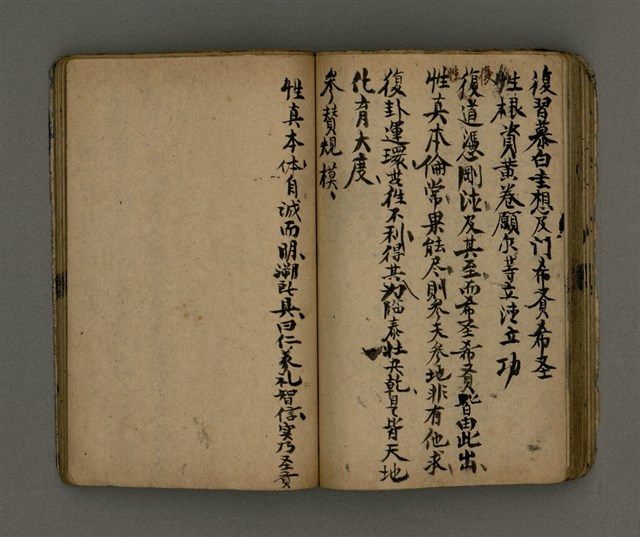 復習慕白圭想及门希賢希圣
性根資黄卷願尔等立法立功
復性
復道憑剛法及其至而希圣希賢皆由此出
性真本倫常果能尽則参天参地非有他求
復卦運環無往不利得其为临泰壮夬乾是皆天地
化育大度
参賛規模
性真本体自诚而明溯此具曰仁義礼智信实乃圣賢